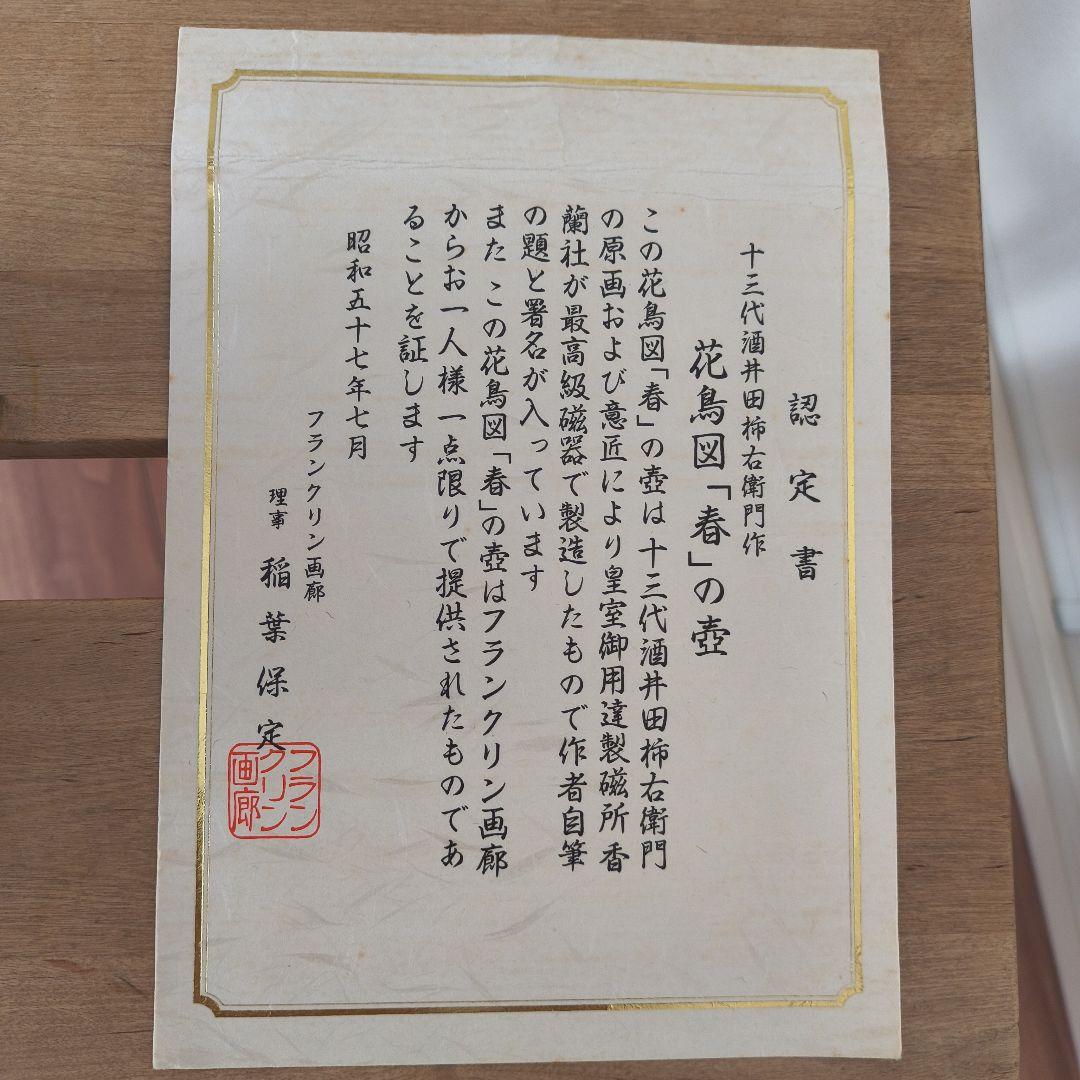 認定書
十三代酒井田柿右衛門作
花鳥図「春」の壺
この花鳥図「春」の壺は十三代酒井田柿右衛門
の原画および意匠により皇室御用達製磁所香
蘭社が最高級磁器で製造したもので作者自筆
の題と署名が入っています
また この花鳥図「春」の壺はフランクリン画廊
からお一人様一点限りで提供されたものであ
ることを証します
昭和五十七年七月
フランクリン画廊
理事 稲葉保定
フランクリン画廊